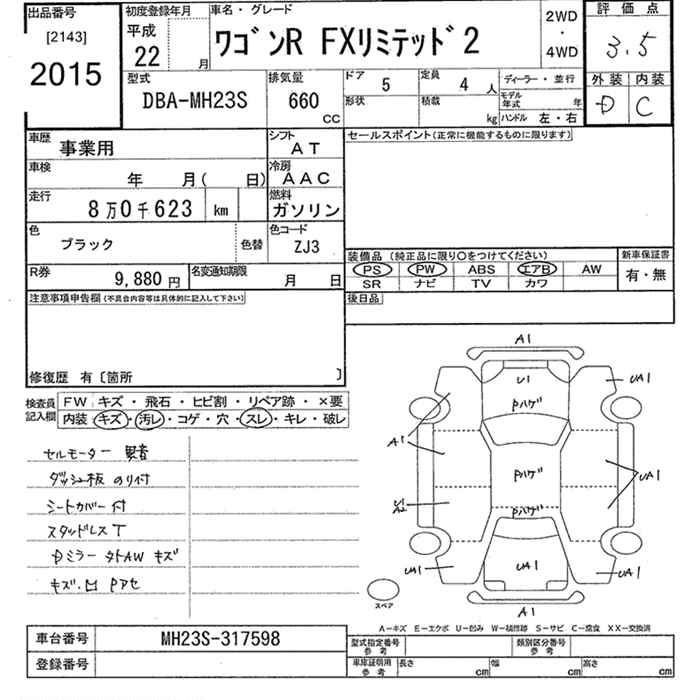 出品番号
[2143]
2015
初度登録年月
平成
22 月
車名・グレード
ワゴンR FXリミテッド2
2WD
・
4WD
評価点
3.5
外装 内装
D C
型式
DBA-MH23S
排気量
660
CC
ドア
5
定員
4 人
形状
積載
kg
ディーラー・並行
モデル年式 年
ハンドル 左・右
車歴
事業用
シフト
AT
車検
年 月( 日)
冷房
AAC
走行
8万0千623 km
燃料
ガソリン
色
ブラック
色替
色コード
ZJ3
R券
9,880 円
名変通知期限
月 日
セールスポイント(正常に機能するものに限ります)
装備品 (純正品に限り○をつけてください)
PS PW ABS エアB AW
SR ナビ TV カワ
新車保証書
有・無
後日品
注意事項申告欄(不具合内容等は具体的に記入して下さい)
修復歴 有〔箇所 〕
検査員
記入欄
FW キズ・飛石・ヒビ割・リペア跡・×要
内装 キズ・汚レ・コゲ・穴・スレ・キレ・破レ
セルモーター 異音
ダッシュ板 のり付
シートカバー付
スタッドレスT
Dミラー タトAW キズ
キズ・凹 Pアセ
A1
U1
UA1
Pハゲ
A1
Pハゲ
UA1
Pハゲ
UA1
UA1
UA1
A1
スペア
A-キズ E-エクボ U-凹み W-補修跡 S-サビ C-腐食 XX-交換済
車台番号
MH23S-317598
登録番号
型式指定番号
参考
類別区分番号
参考
車庫証明用
参考
長さ cm
幅 cm
高さ cm